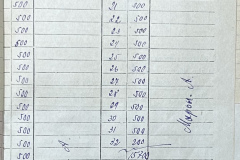 500 21 500
500 22 500
500 23 500
500 24 500
500 25 500
500 26 500
500 27 500
500 28 500
500 29 500
500 30 500
500 31 500
500 32 200
500 15700